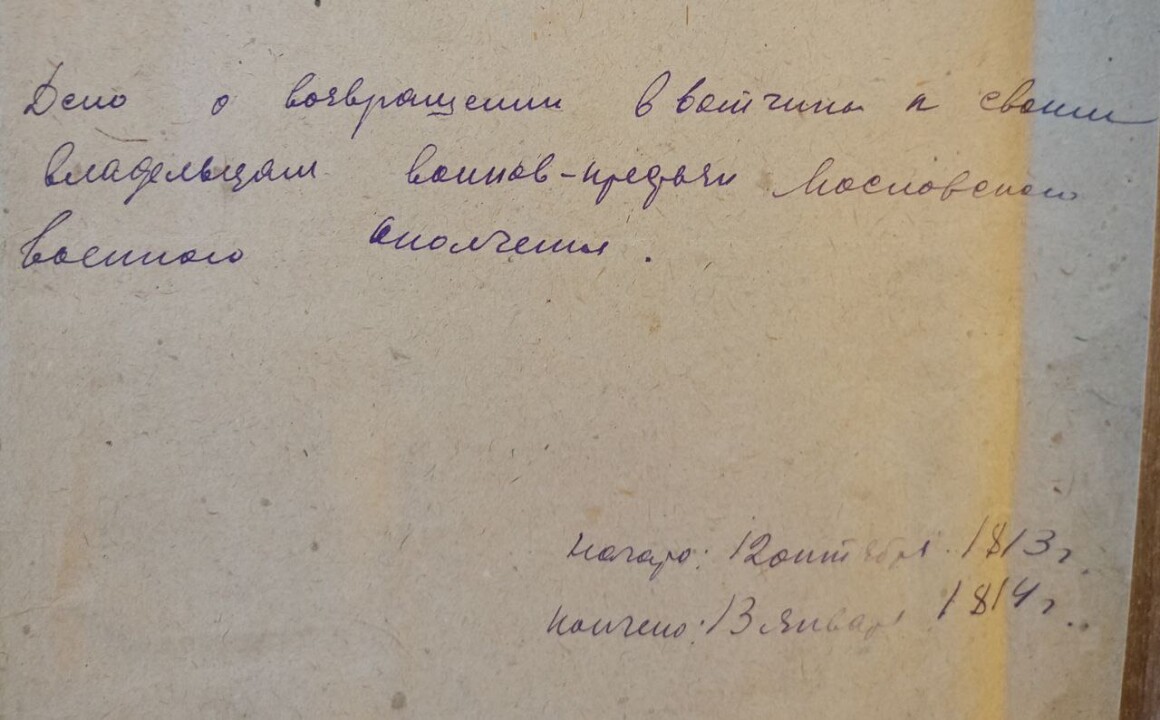 Дело о возвращении в вотчины к своим
владельцам воинов- Московского
военного ополчения.
Начато: 12 октября 1813 г.
Кончено: 13 января 1814 г.